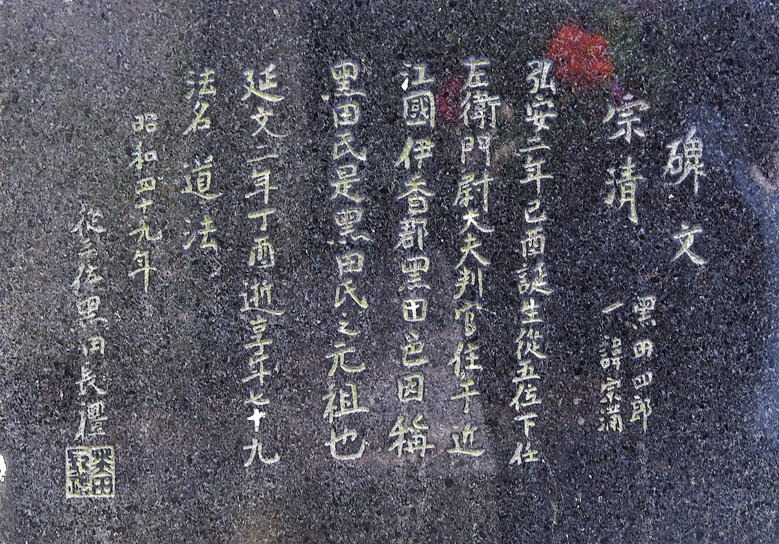 碑文
宗清 黑田四郎
一諱宗満
弘安二年己酉誕生從五位下任
左衛門尉大夫判官住于近
江國伊香郡黑田邑因稱
黑田氏是黑田氏之元祖也
延文二年丁酉逝享年七十九
法名 道法
昭和四十九年
從三位黑田長禮